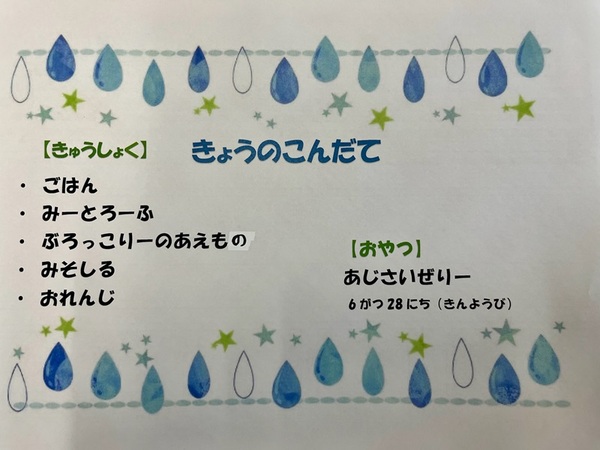 きょうのこんだて
【きゅうしょく】
・ ごはん
・ みーとろーふ
・ ぶろっこりーのあえもの
・ みそしる
・ おれんじ
【おやつ】
あじさいぜりー
6がつ28にち（きんようび）